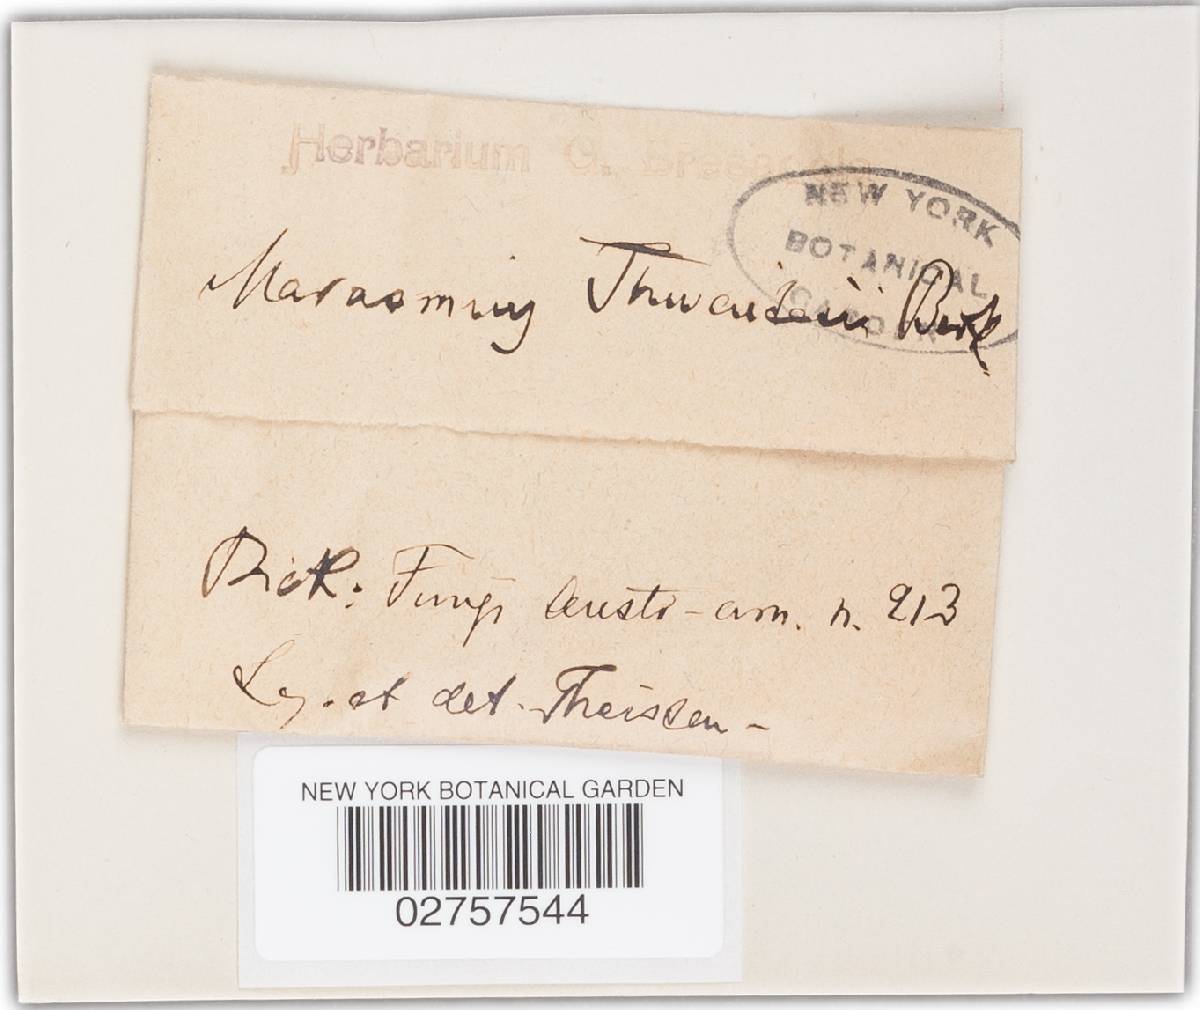 Herbarium G. Bresadola
NEW YORK
BOTANICAL
GARDEN
Marasmius Thwaitesii Berk.
Rick: Fungi austr-am. n. 213
Leg. et det. Theissen -
NEW YORK BOTANICAL GARDEN
02757544